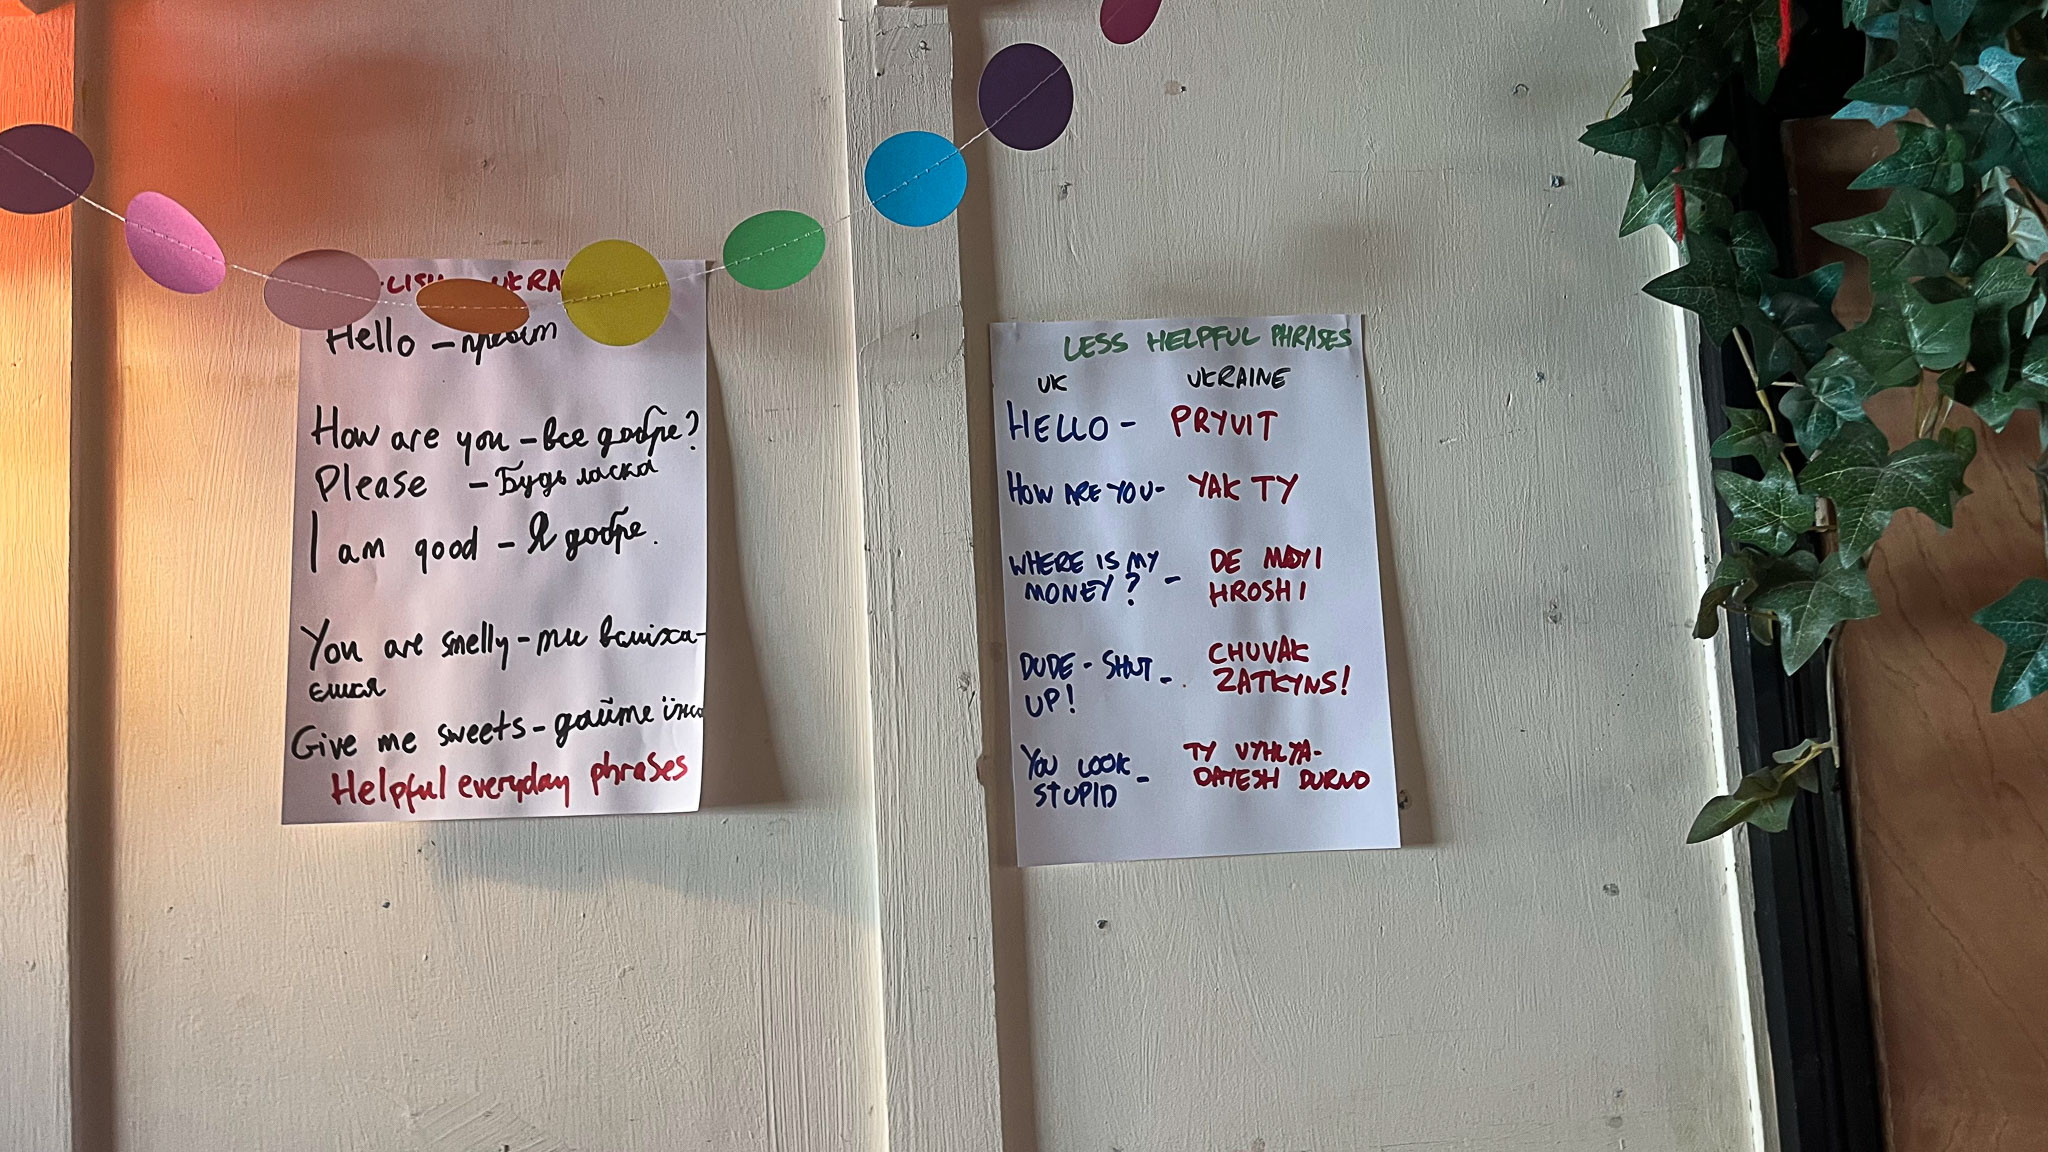 LISH UKRA
Hello – привіт
How are you – все добре?
Please – Будь ласка
I am good – Я добре.
You are smelly – ти
єшся
Give me sweets – дайте
Helpful everyday phrases
LESS HELPFUL PHRASES
UK UKRAINE
HELLO – PRYVIT
HOW ARE YOU – YAK TY
WHERE IS MY DE MOYI
MONEY? – HROSHI
DUDE – SHUT CHUVAK
UP! – ZATKYNS!
YOU LOOK – TY VYHLYA-
STUPID DAYESH DURNO